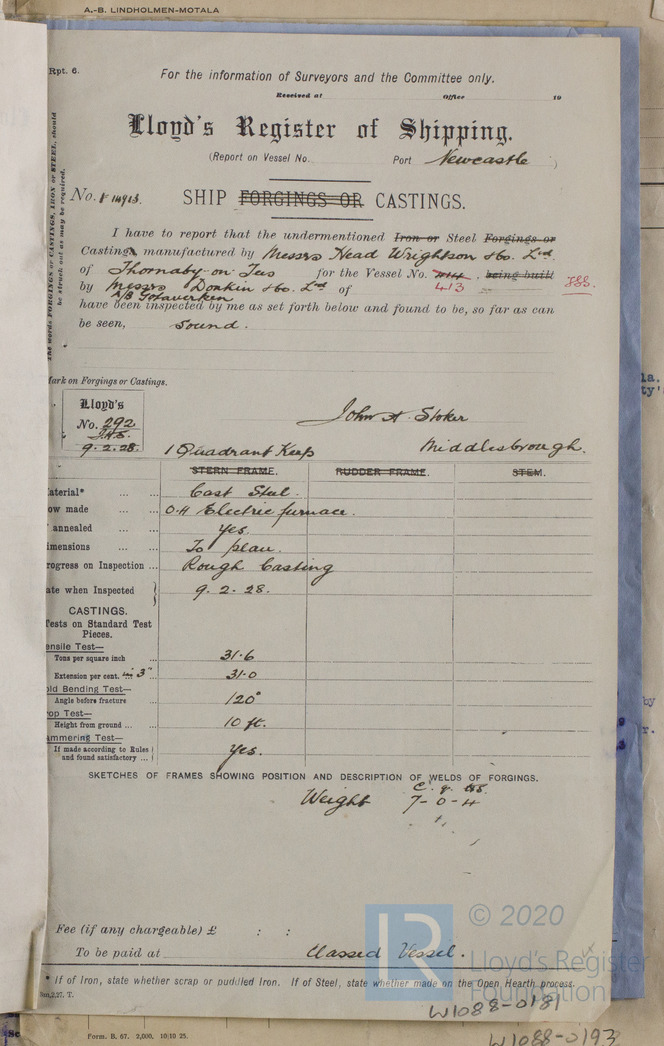 A.-B. LINDHOLMEN-MOTALA
Rpt. 6.
For the information of Surveyors and the Committee only.
Received at Office 19
Lloyd's Register of Shipping.
(Report on Vessel No. Port Newcastle )
The words FORGINGS or CASTINGS, IRON or STEEL, should
be struck out as may be required.
No. 14913.
SHIP FORGINGS OR CASTINGS.
I have to report that the undermentioned Iron or Steel Forgings or
Castings manufactured by Messrs Head Wrightson & Co. Ltd.
of Thornaby-on-Tees for the Vessel No. being built
413
by Messrs Donkin & Co. Ltd of
A/B Gotaverken
have been inspected by me as set forth below and found to be, so far as can
be seen, sound.
Mark on Forgings or Castings.
Lloyd's
No. 292
J.A.S.
9.2.28.
John A Stoker
1 Quadrant Keep Middlesbrough.
STERN FRAME. RUDDER FRAME. STEM.
aterial* ... ... Cast Steel.
ow made ... ... O.H Electric furnace.
annealed ... ... Yes.
imensions ... ... To plan.
rogress on Inspection ... Rough Casting
ate when Inspected 9.2.28.
CASTINGS.
Tests on Standard Test
Pieces.
ensile Test—
Tons per square inch ... 31.6
Extension per cent. in 3" ... 31.0
old Bending Test—
Angle before fracture ... 120°
rop Test—
Height from ground ... ... 10 ft.
ammering Test—
If made according to Rules
and found satisfactory ... Yes.
SKETCHES OF FRAMES SHOWING POSITION AND DESCRIPTION OF WELDS OF FORGINGS.
C. q. lbs.
Weight 7-0-4
Fee (if any chargeable) £ : :
To be paid at Classed Vessel.
* If of Iron, state whether scrap or puddled Iron. If of Steel, state whether made on the Open Hearth process.
2,27. T.
© 2020
LR
Lloyd's Register
Foundation
W1088-0181
W1088-0193
Form. B. 67. 2,000. 10|10 25.